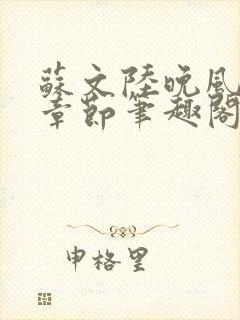 蘇文陸晚風
章節筆趣閣
申格里